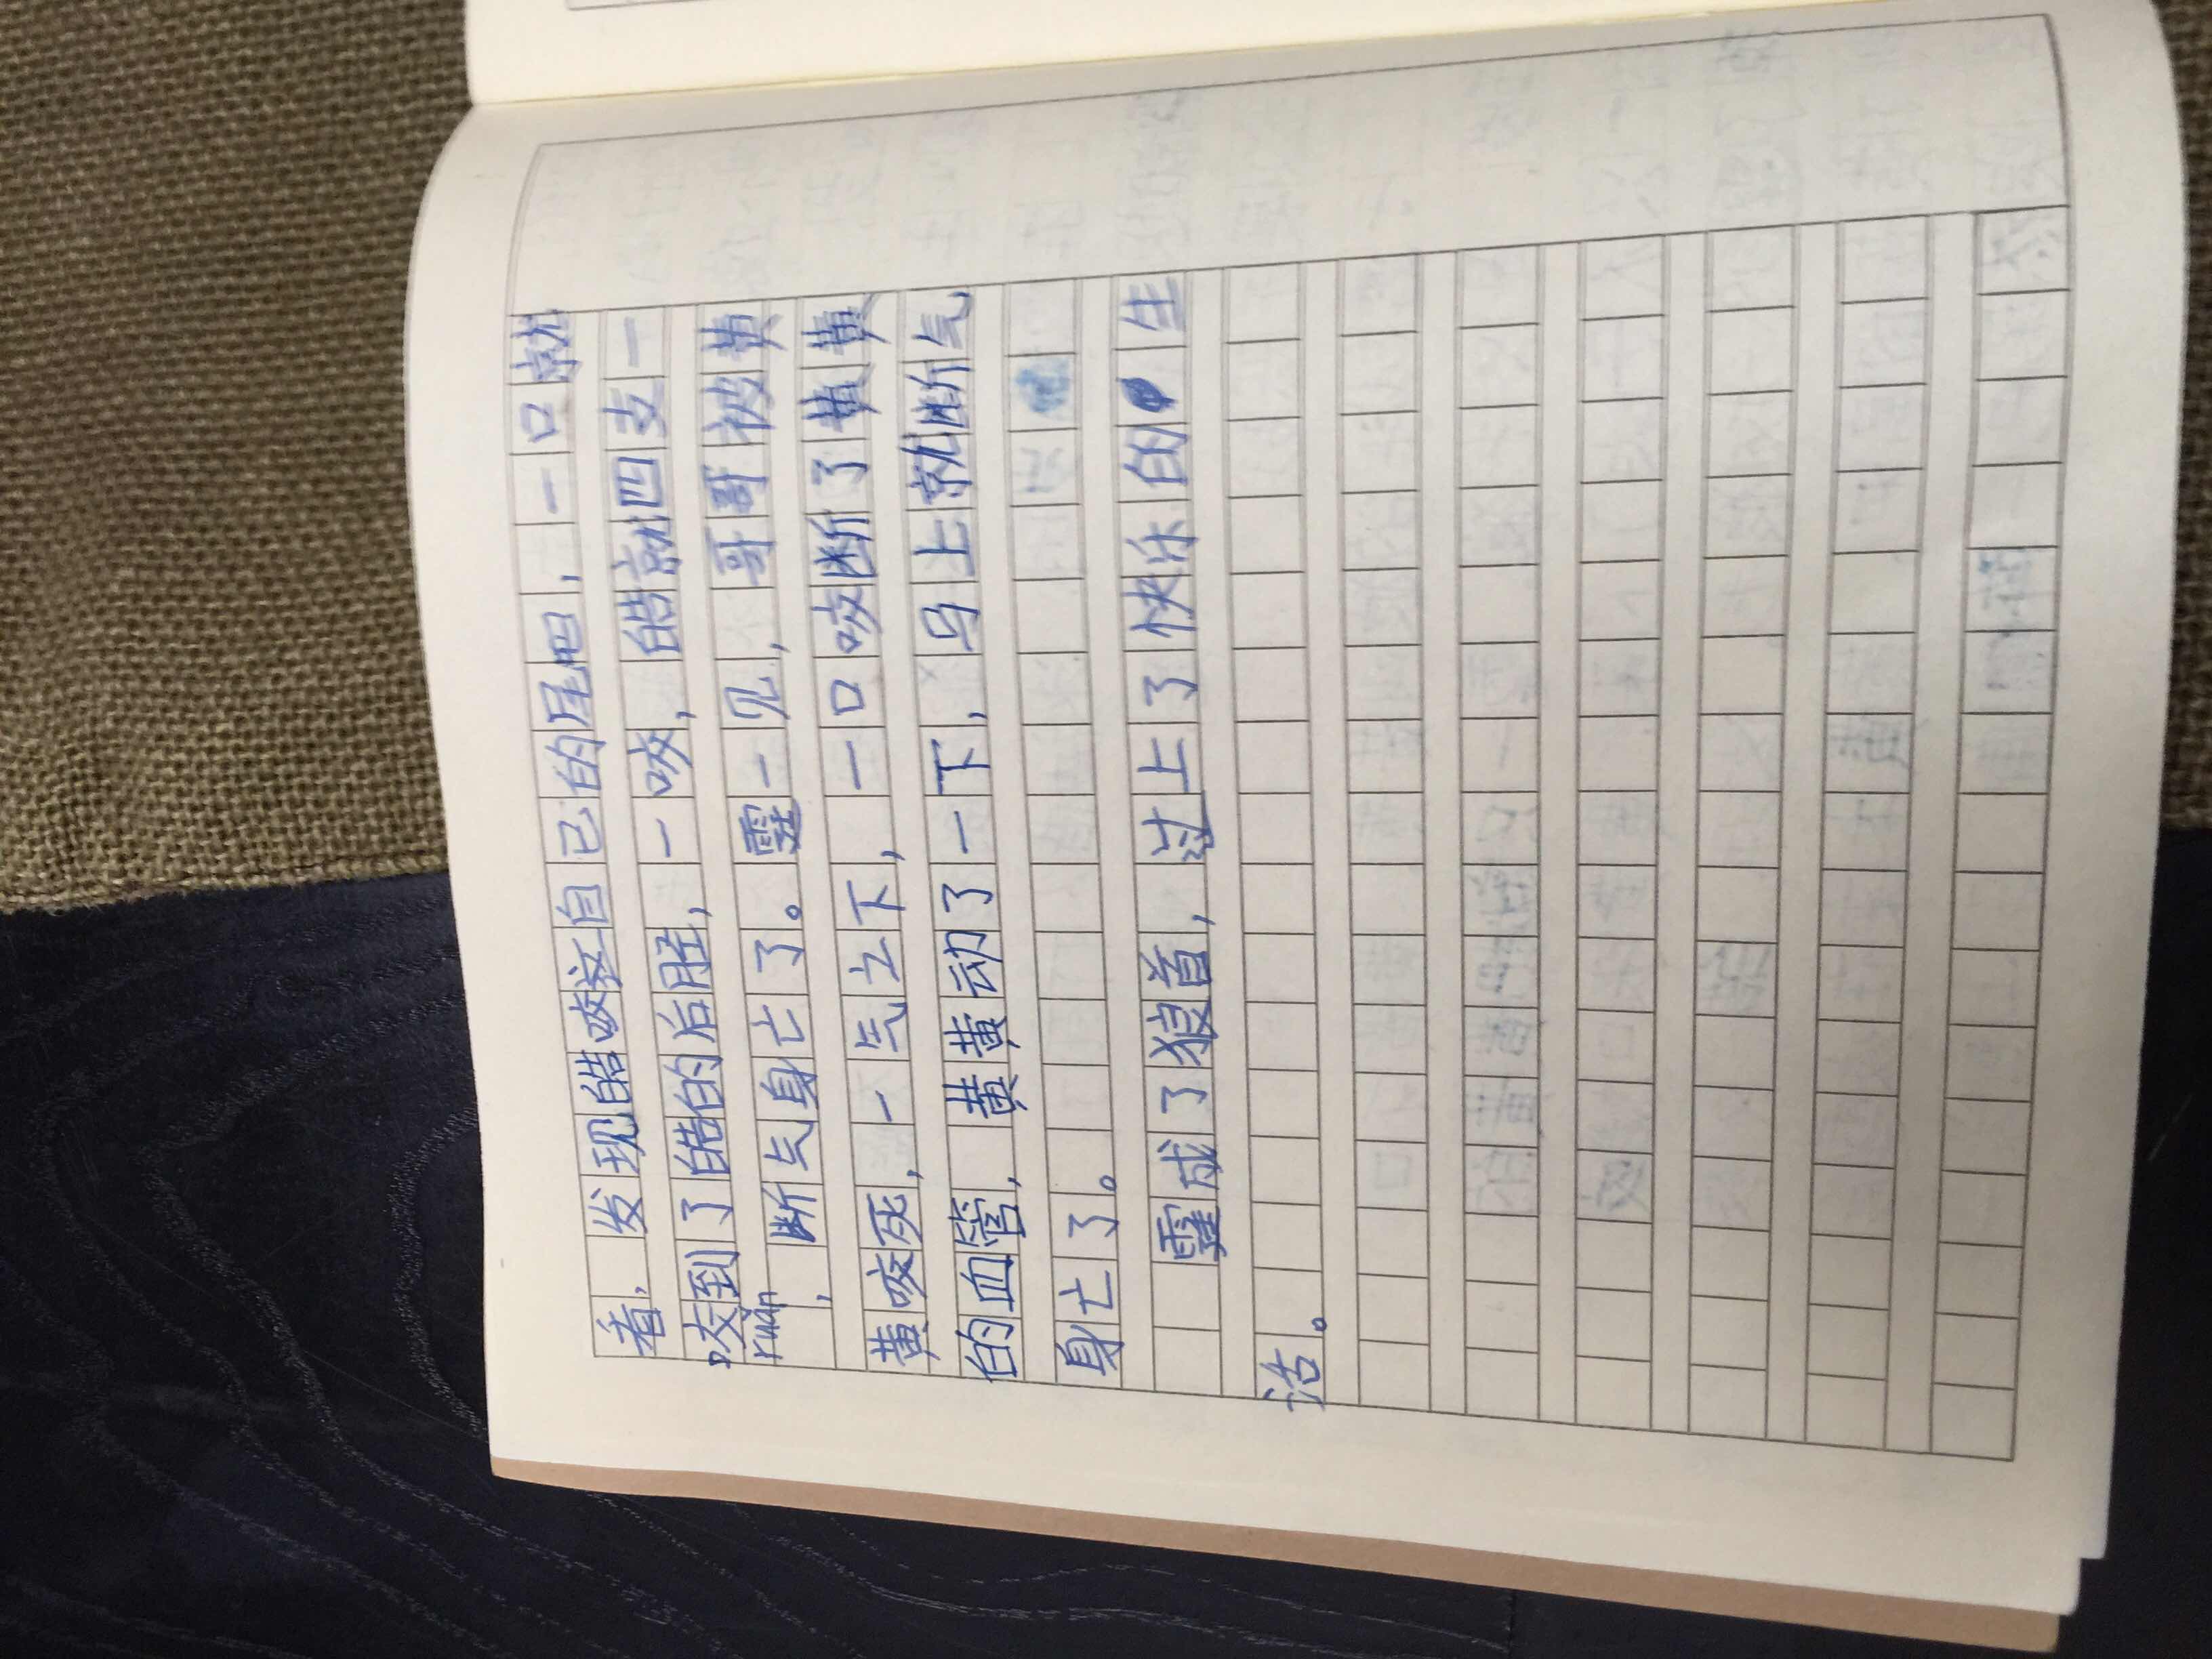 看，发现皓咬这自己的尾巴，一口就
咬到了皓的后胫，一咬，皓就四支一
ruǎn，断气身亡了。霆一见，哥哥被黄
黄咬死，一气之下，一口咬断了黄黄
的血管，黄黄动了一下，马上就断气
身亡了。
霆成了狼首，过上了快乐的生
活。